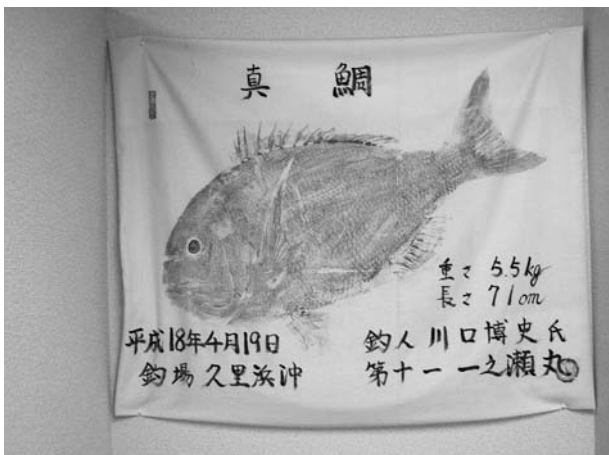 真鯛
重さ 5.5kg
長さ 71cm
平成18年4月19日
釣場 久里浜沖
釣人 川口博史氏
第十一 一之瀬丸